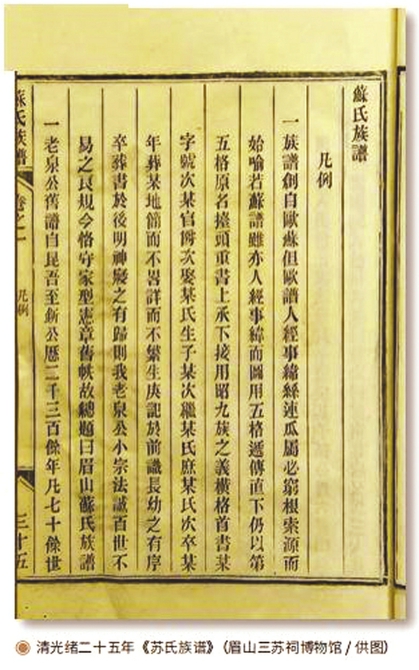 蘇氏族譜
凡例
一族譜創自歐蘇但歐譜人經事緯絲連瓜屬必窮根索源而
始喻若蘇譜雖亦人經事緯而圖用五格遞傳直下仍以第
五格原名擡頭重書上承下接用昭九族之義橫格首書某
字號次某官爵次娶某氏生子某次繼某氏庶某氏次卒某
年葬某地簡而不畧詳而不繁生庚記於前識長幼之有序
卒葬書於後明神凝之有歸則我老泉公小宗法誠百世不
易之良規今恪守家型憲章舊帙故總題曰眉山蘇氏族譜
一老泉公舊譜自昆吾至釿公歷二千三百餘年凡七十餘世
蘇氏族譜 卷之一 凡例 三十五
清光绪二十五年《苏氏族谱》（眉山三苏祠博物馆 / 供图）